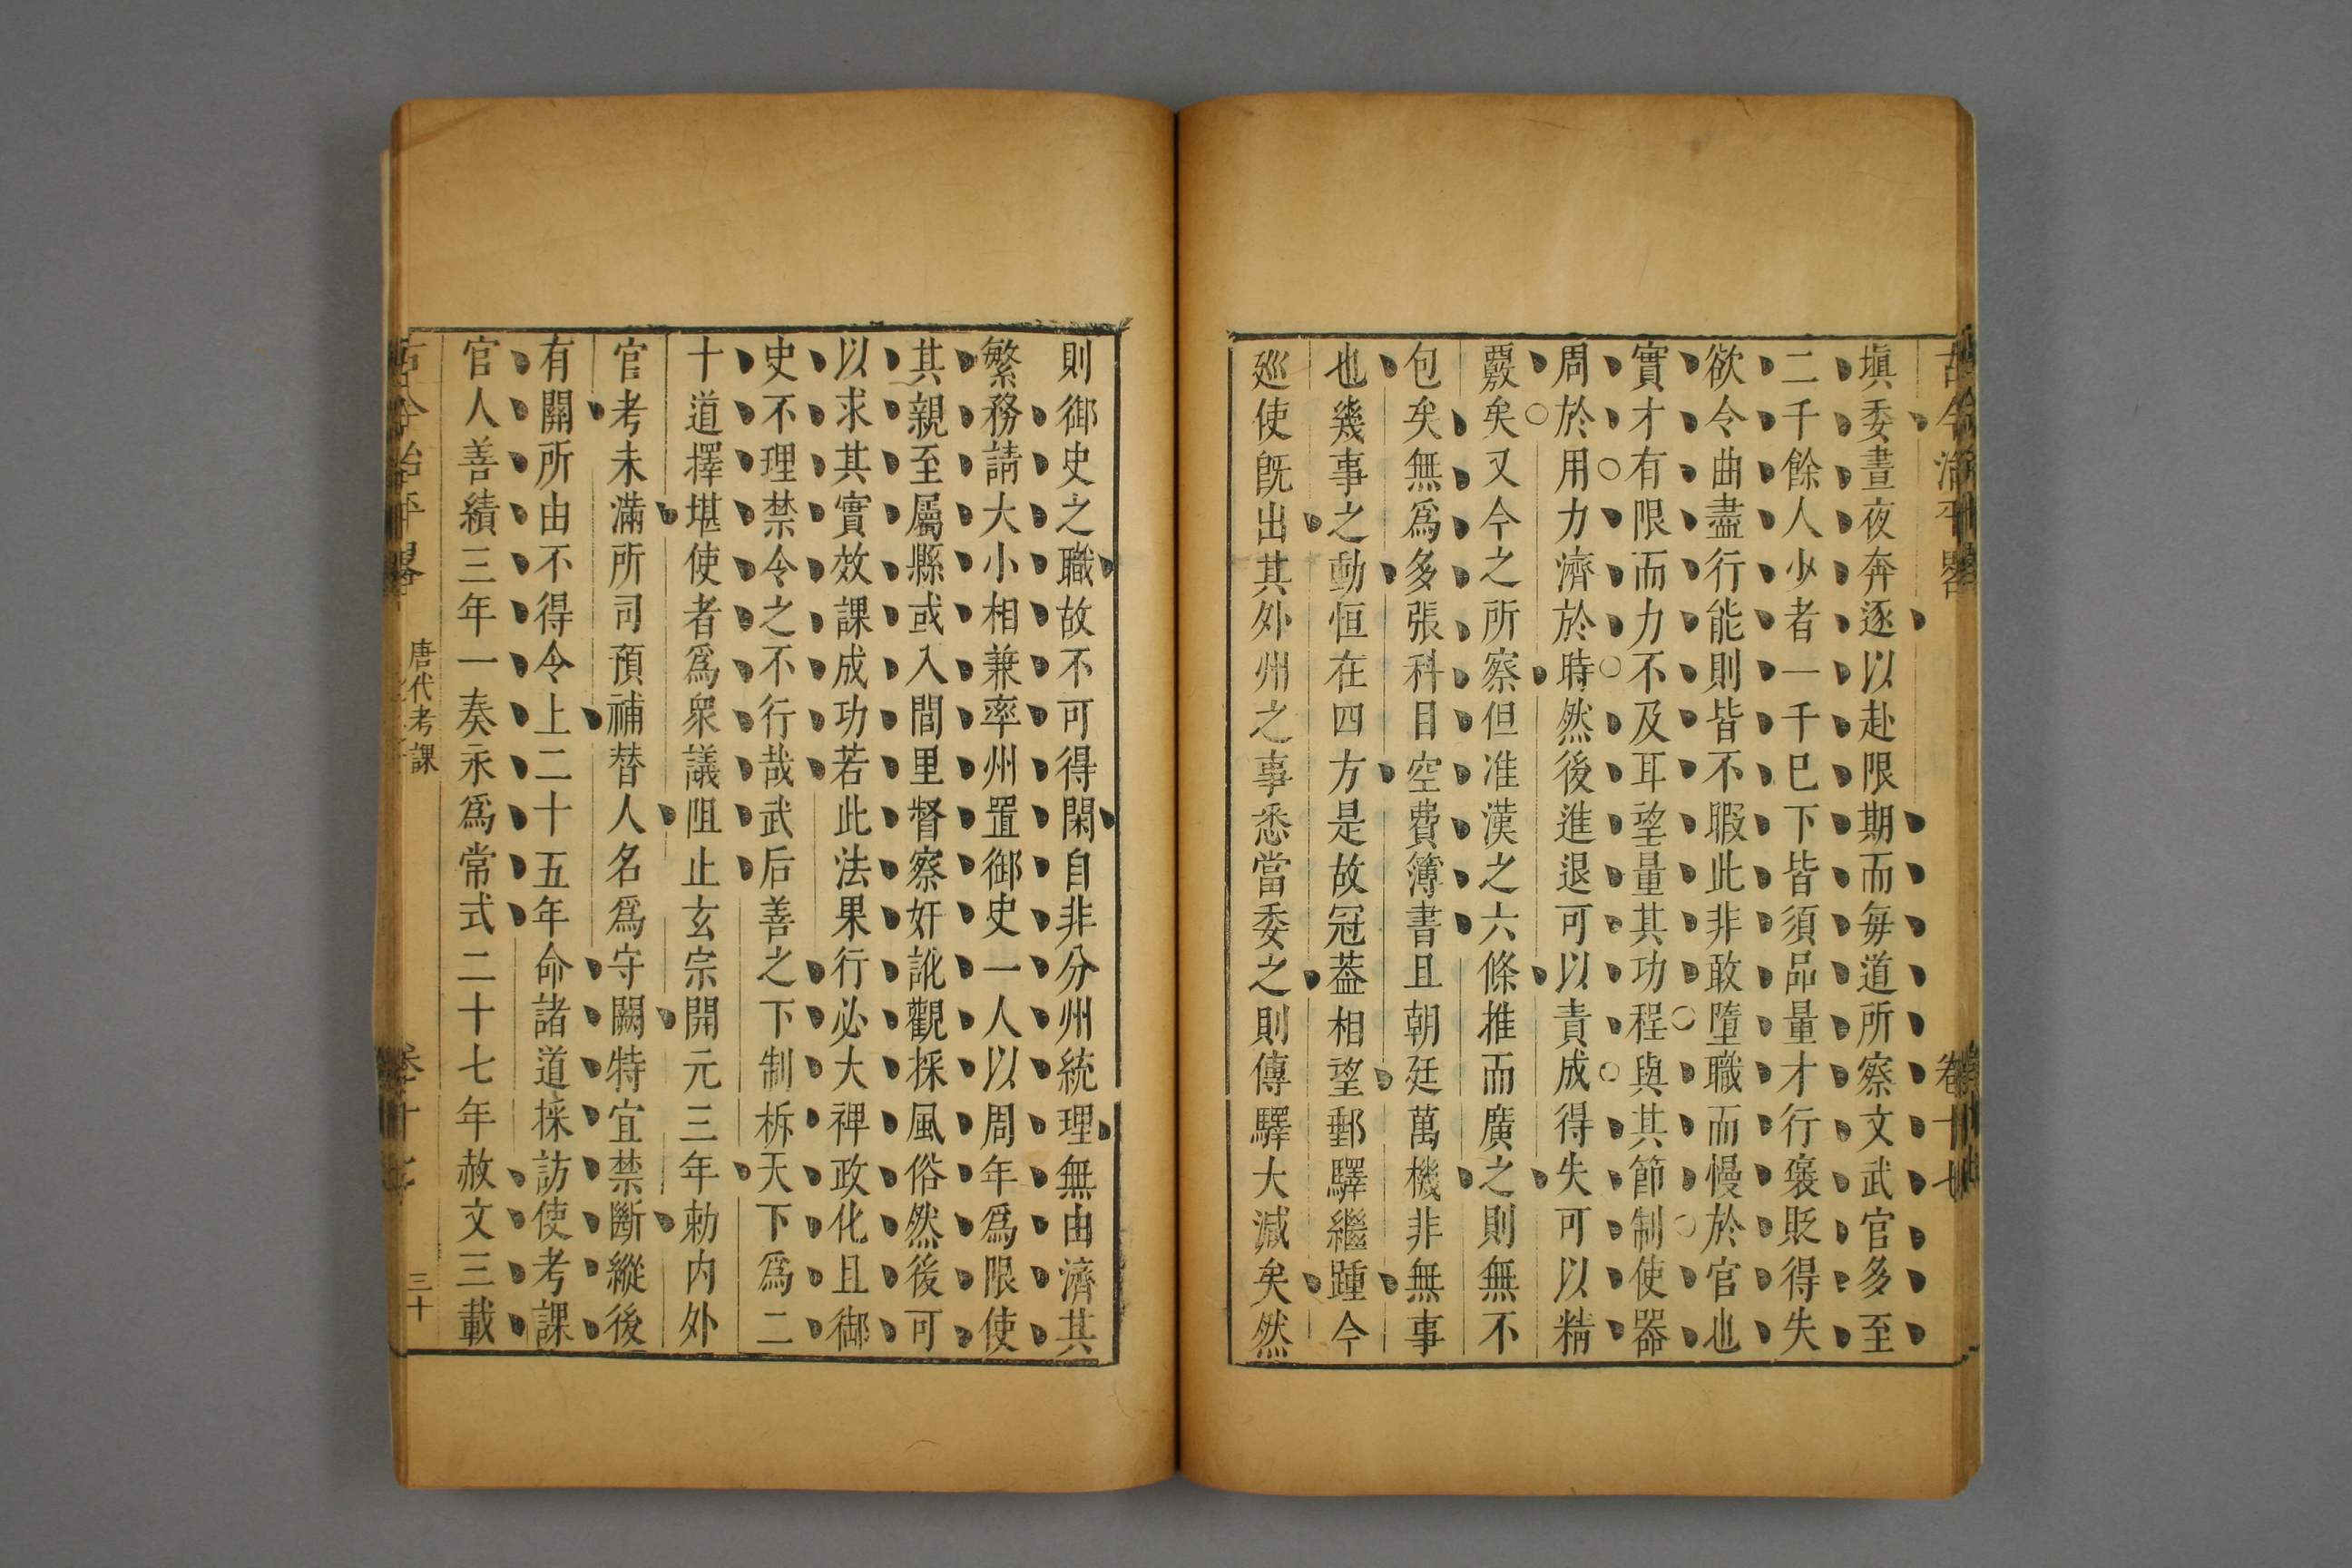 古今治平畧 卷十七
塡委晝夜奔逐以赴限期而每道所察文武官多至
二千餘人少者一千巳下皆須品量才行褒貶得失
欲令曲盡行能則皆不暇此非敢墮職而慢於官也
實才有限而力不及耳望量其功程與其節制使器
周於用力濟於時然後進退可以責成得失可以精
覈矣又今之所察但准漢之六條推而廣之則無不
包矣無爲多張科目空費簿書且朝廷萬機非無事
也幾事之動恒在四方是故冠葢相望郵驛繼踵今
廵使旣出其外州之事悉當委之則傳驛大減矣然
則御史之職故不可得閑自非分州統理無由濟其
繁務請大小相兼率州置御史一人以周年爲限使
其親至屬縣或入閭里督察奸訛觀採風俗然後可
以求其實效課成功若此法果行必大禆政化且御
史不理禁令之不行哉武后善之下制析天下爲二
十道擇堪使者爲衆議阻止玄宗開元三年勅内外
官考未滿所司預補替人名爲守闕特宜禁斷縱後
有闕所由不得令上二十五年命諸道採訪使考課
官人善績三年一奏永爲常式二十七年赦文三載
古今治平畧 唐代考課 卷十七 三十